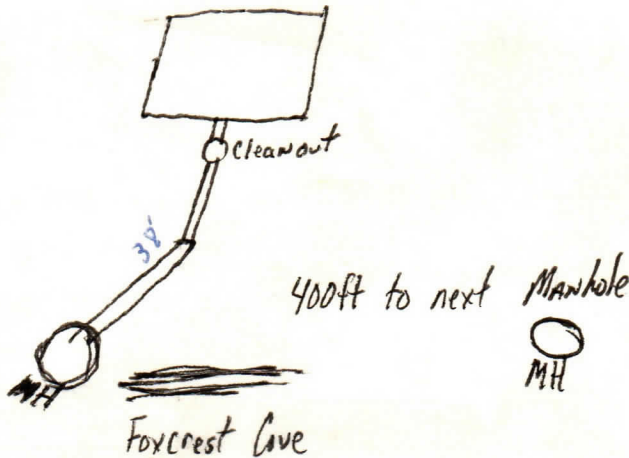 Cleanout
38'
400ft to next Manhole
MH
MH
Foxcrest Cove